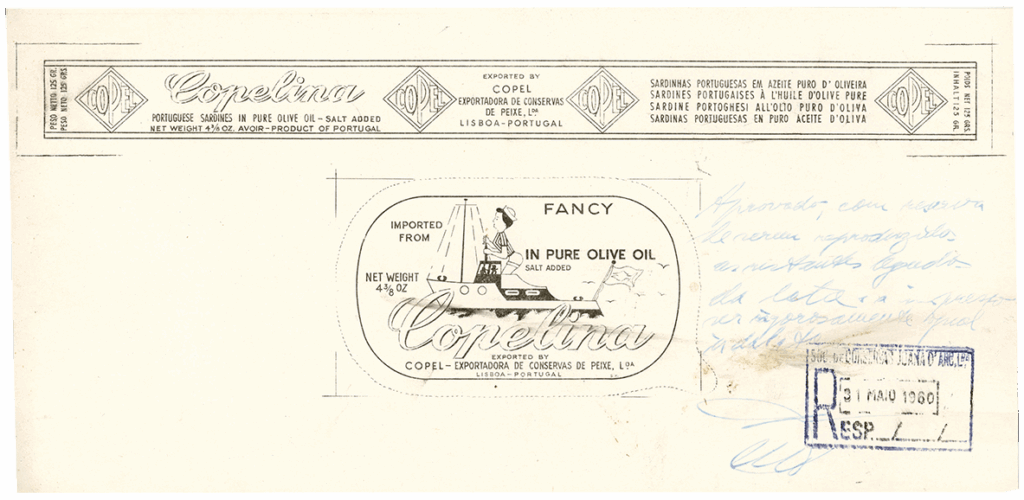 PESO NETTO 125 GR.
PESO NETO 125 GRS
COPEL
Copelina
PORTUGUESE SARDINES IN PURE OLIVE OIL - SALT ADDED
NET WEIGHT 4 3/8 OZ. AVOIR - PRODUCT OF PORTUGAL
COPEL
EXPORTED BY
COPEL
EXPORTADORA DE CONSERVAS
DE PEIXE, LDA
LISBOA - PORTUGAL
COPEL
SARDINHAS PORTUGUESAS EM AZEITE PURO D'OLIVEIRA
SARDINES PORTUGAISES À L'HUILE D'OLIVE PURE
SARDINE PORTOGHESI ALL'OLTO PURO D'OLIVA
SARDINAS PORTUGUESAS EN PURO ACEITE D'OLIVA
COPEL
POIDS NET 125 GRS
INHALT: 125 GR.
FANCY
IMPORTED
FROM
IN PURE OLIVE OIL
SALT ADDED
NET WEIGHT
4 3/8 OZ
Copelina
EXPORTED BY
COPEL - EXPORTADORA DE CONSERVAS DE PEIXE, LDA
LISBOA - PORTUGAL
Aprovado, com reserva
de serem reproduzidos
as restantes
da lata
ser rigorosamente igual
SOC. DE CONSERVAS JOANA D'ARC, LDA
31 MAIO 1960
RESP. / /